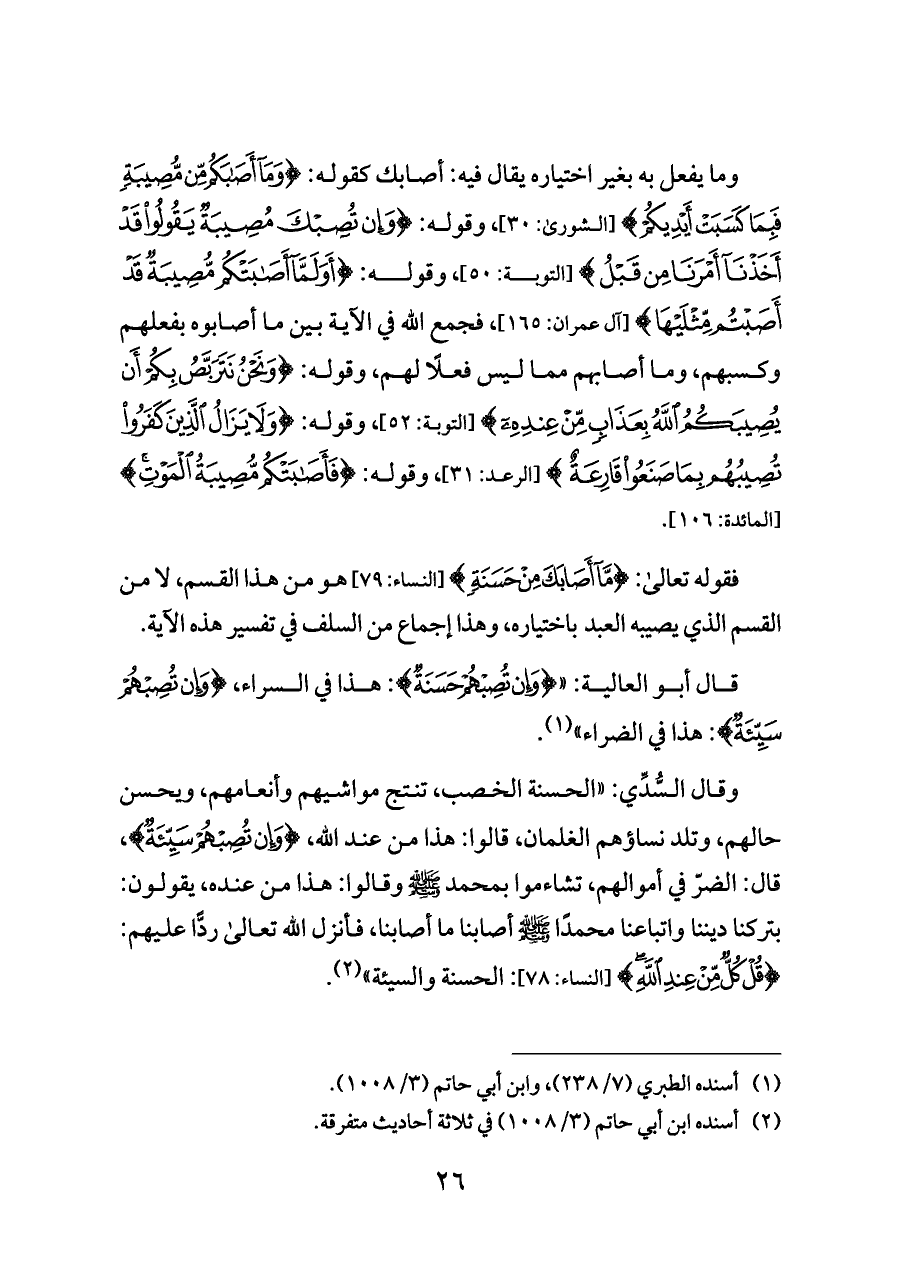 وما يفعل به بغير اختياره يقال فيه: أصابك كقوله: ﴿وَمَآ أَصَٰبَكُم مِّن مُّصِيبَةٖ
فَبِمَا كَسَبَتۡ أَيۡدِيكُمۡ﴾ [الشورىٰ: ٣٠]، وقوله: ﴿وَإِن تُصِبۡكَ مُصِيبَةٞ يَقُولُواْ قَدۡ
أَخَذۡنَآ أَمۡرَنَا مِن قَبۡلُ﴾ [التوبة: ٥٠]، وقوله: ﴿أَوَلَمَّآ أَصَٰبَتۡكُم مُّصِيبَةٞ قَدۡ
أَصَبۡتُم مِّثۡلَيۡهَا﴾ [آل عمران: ١٦٥]، فجمع الله في الآية بين ما أصابوه بفعلهم
وكسبهم، وما أصابهم مما ليس فعلًا لهم، وقوله: ﴿وَنَحۡنُ نَتَرَبَّصُ بِكُمۡ أَن
يُصِيبَكُمُ ٱللَّهُ بِعَذَابٖ مِّنۡ عِندِهِۦٓ﴾ [التوبة: ٥٢]، وقوله: ﴿وَلَا يَزَالُ ٱلَّذِينَ كَفَرُواْ
تُصِيبُهُم بِمَا صَنَعُواْ قَارِعَةٌ﴾ [الرعد: ٣١]، وقوله: ﴿فَأَصَٰبَتۡكُم مُّصِيبَةُ ٱلۡمَوۡتِۚ﴾
[المائدة: ١٠٦].
فقوله تعالىٰ: ﴿مَّآ أَصَابَكَ مِنۡ حَسَنَةٖ﴾ [النساء: ٧٩] هو من هذا القسم، لا من
القسم الذي يصيبه العبد باختياره، وهذا إجماع من السلف في تفسير هذه الآية.
قال أبو العالية: «﴿وَإِن تُصِبۡهُمۡ حَسَنَةٞ﴾: هذا في السراء، ﴿وَإِن تُصِبۡهُمۡ
سَيِّئَةٞ﴾: هذا في الضراء»(١).
وقال السُّدِّي: «الحسنة الخصب، تنتج مواشيهم وأنعامهم، ويحسن
حالهم، وتلد نساؤهم الغلمان، قالوا: هذا من عند الله، ﴿وَإِن تُصِبۡهُمۡ سَيِّئَةٞ﴾،
قال: الضرّ في أموالهم، تشاءموا بمحمد ﷺ وقالوا: هذا من عنده، يقولون:
بتركنا ديننا واتباعنا محمدًا ﷺ أصابنا ما أصابنا، فأنزل الله تعالىٰ ردًّا عليهم:
﴿قُلۡ كُلّٞ مِّنۡ عِندِ ٱللَّهِۖ﴾ [النساء: ٧٨]: الحسنة والسيئة»(٢).
(١) أسنده الطبري (٧/ ٢٣٨)، وابن أبي حاتم (٣/ ١٠٠٨).
(٢) أسنده ابن أبي حاتم (٣/ ١٠٠٨) في ثلاثة أحاديث متفرقة.
٢٦